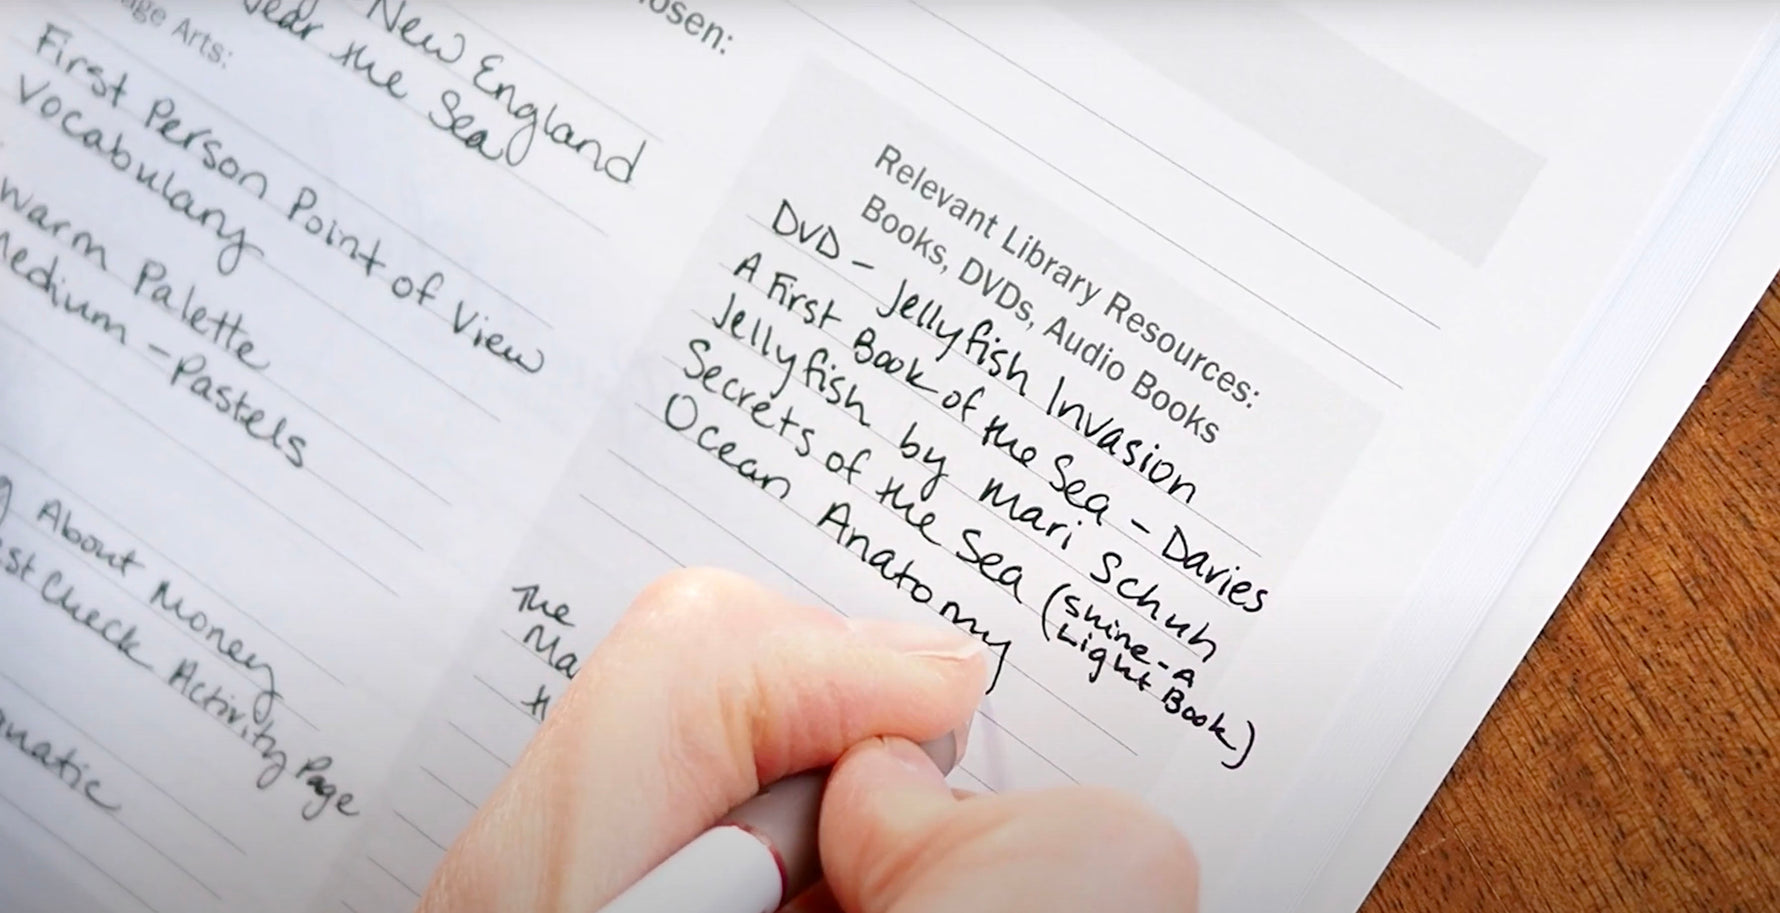 New England
the Sea
Arts:
First Person Point of View
Vocabulary
Warm Palette
Medium - Pastels
About Money
Check Activity Page
Relevant Library Resources:
Books, DVDs, Audio Books
DVD - Jellyfish Invasion
A First Book of the Sea - Davies
Jellyfish by Mari Schuh
Secrets of the Sea (Shine-A
Light Book)
Ocean Anatomy
The